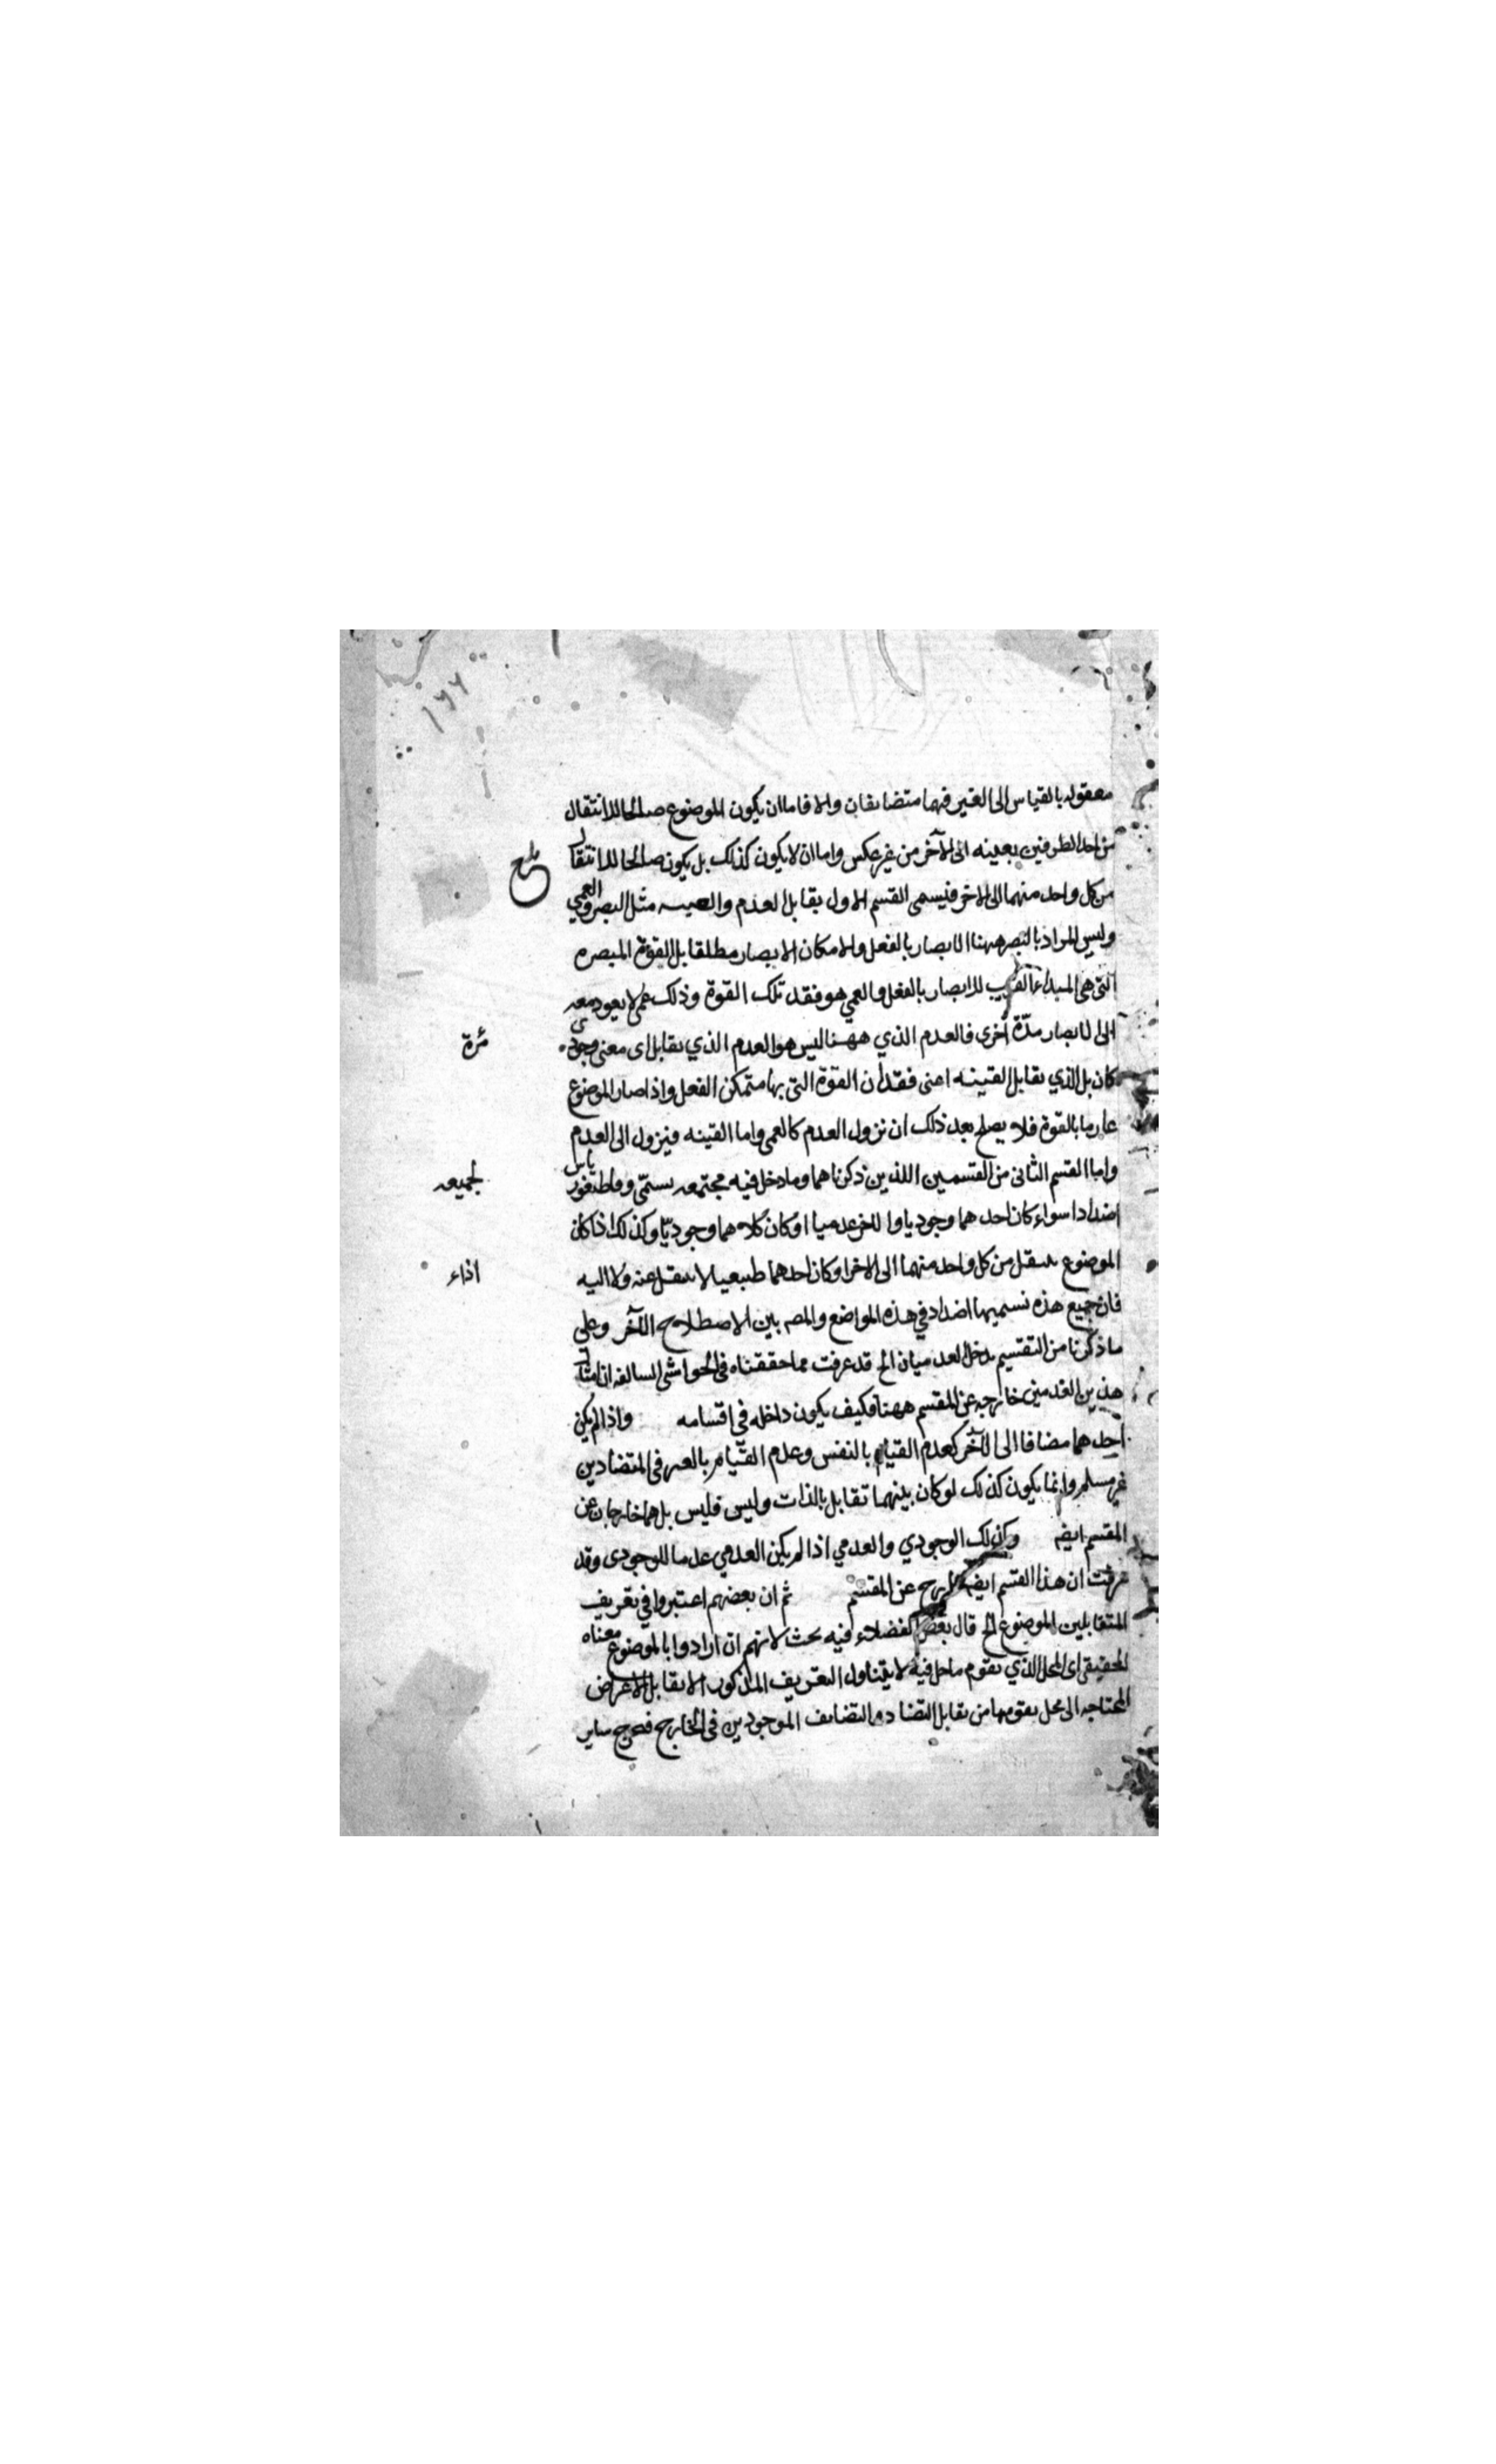 معقوله بالقياس الى الغير فهما متضايفان والا فاما ان يكون الموضوع صالحا للانتقال
من احد الطرفين بعينه الى الآخر من غير عكس واما ان لا يكون كذلك بل يكون صالحا للانتقال
من كل واحد منهما الى الاخر فنيسمى القسم الاول تقابل العدم والقينه مثل البصر والعمي
وليس المراد بالبصر ههنا الابصار بالفعل ولا مكان الابصار مطلقا بل القوة المبصره
التى هى المبداء القريب للابصار بالفعل والعمي هو فقد تلك القوة وذلك عمى لا يعود معه
الى الابصار مدّة أخرى فالعدم الذي ههنا ليس هو العدم الذي يقابل اى معنى وجودى
مرّة
كان بل الذي يقابل القينه اعنى فقدان القوة التى بها متمكن الفعل واذا صار الموضوع
عادما بالقوة فلا يصلح بعد ذلك ان نزول العدم كالعمى واما القينه فيزول الى العدم
واما القسم الثانى من القسمين اللذين ذكرناهما وما دخل فيه مجتمعه يسمّى
لجميعه
اضدادا سواء كان احدهما وجوديا والاخر عدميا او كان كلاهما وجوديّا وكذلك اذا كان
الموضوع ينتقل من كل واحد منهما الى الاخر او كان احدهما طبيعيا لا ينتقل عنه ولا اليه
اذاء
فان جميع هذه نسميها اضداد في هذه المواضع بين الاصطلاح الآخر وعلى
ما ذكرنا من التقسيم يدخل العدميان الخ قد عرفت مما حققناه فى الحواشى السالفه ان امثال
هذين العدمين خارجه عن المقسم ههنا فكيف يكون داخله في اقسامه واذا لم يكن
احدهما مضافا الى الآخر كعدم القيام بالنفس وعدم القيّام بالغير فى المتضادين
غير مسلم وانما يكون كذلك لو كان بينهما تقابل بالذات وليس فليس بل هما خارجان عن
المقسم ايضا وكذلك الوجودي والعدمي اذا لم يكن العدمي عدما للوجودى وقد
عرفت ان هذا القسم ايضا خارج عن المقسم ثم ان بعضهم اعتبروا في تعريف
المتقابلين الموضوع الخ قال بعض الفضلاء فيه بحث لانهم ان ارادوا بالموضوع معناه
الحقيقى اى المحل الذي يقوم ما حل فيه لا يتناول التعريف المذكور الا تقابل الاعراض
المحتاجه الى محل يقومها من تقابل التضاد والتضايف الموجودين فى الخارج فخرج ساير